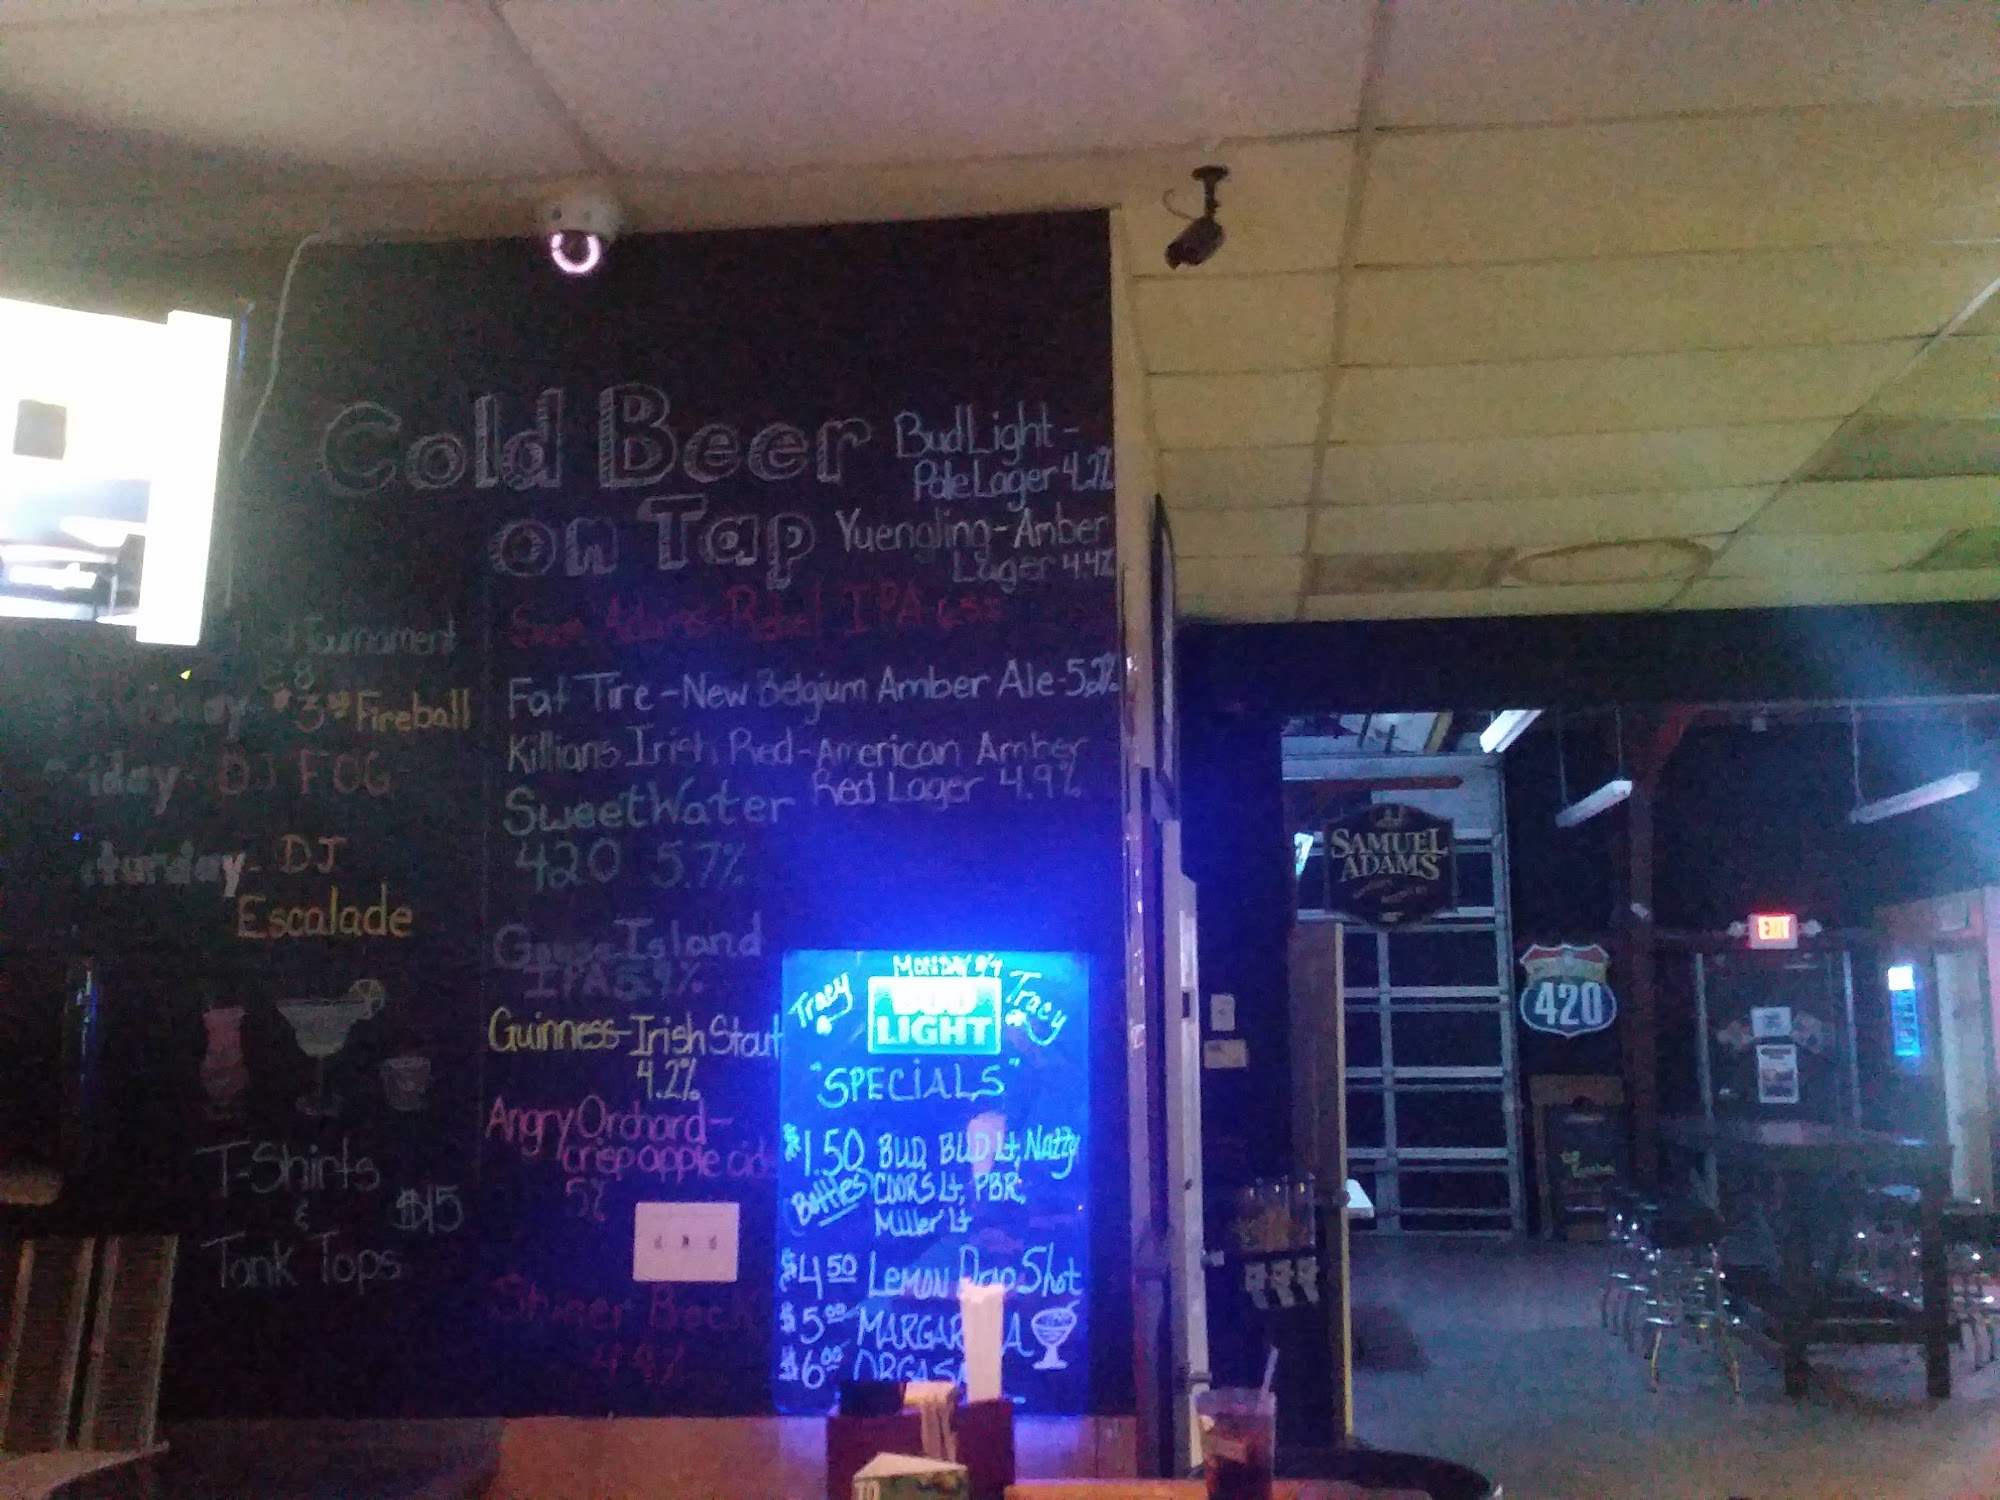 Cold Beer
on Tap
Bud Light -
Pale Lager 4.2%
Yuengling - Amber
Lager 4.4%
Sam Adams - Rebel IPA 6.5%
Fat Tire - New Belgium Amber Ale - 5.2%
Killians Irish Red - American Amber
Red Lager 4.9%
SweetWater
420 5.7%
Goose Island
IPA 5.9%
Guinness - Irish Stout
4.2%
Angry Orchard -
crisp apple cid
5%
Shiner Bock
4.4%
Tournament
$3 Fireball
riday - DJ FOG
turday - DJ
Escalade
T-Shirts
&
Tank Tops
$15
MONDAY
Tracy
BUD
LIGHT
Tracy
"SPECIALS"
$1.50 BUD, BUD Lt, Natty
Bottles COORS Lt, PBR,
Miller Lt
$4.50 LEMON Drop Shot
$5.00 MARGAR A
$6.00 ORGAS
SAMUEL
ADAMS
EXIT
420